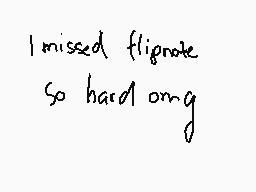 I missed flipnote
so hard omg